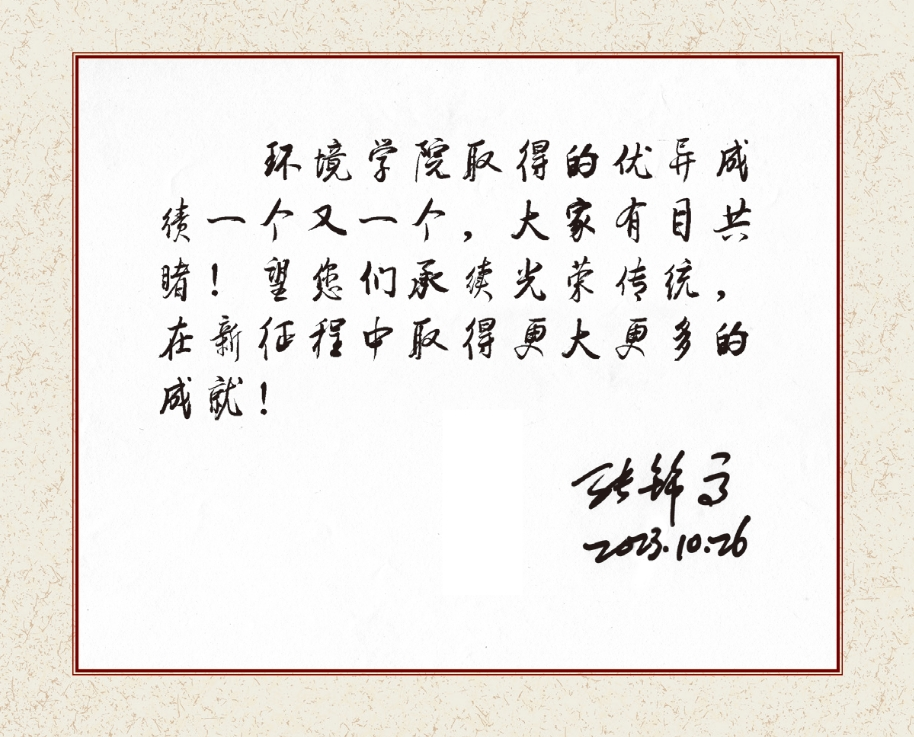 环境学院取得的优异成
绩一个又一个，大家有目共
睹！望您们承续光荣传统，
在新征程中取得更大更多的
成就！
张锦高
2023.10.26